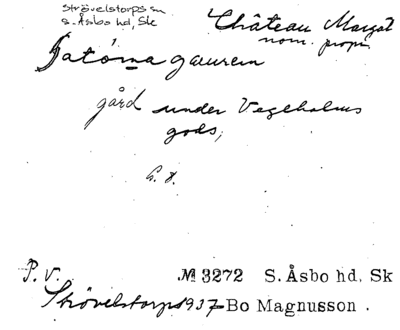 Strövelstorps sn
S. Åsbo hd, Sk
Château Margot
nom. propr.
gård under Vegeholms
gods;
P. V.
M 3272 S. Åsbo hd, Sk
Strövelstorp 1937 Bo Magnusson.